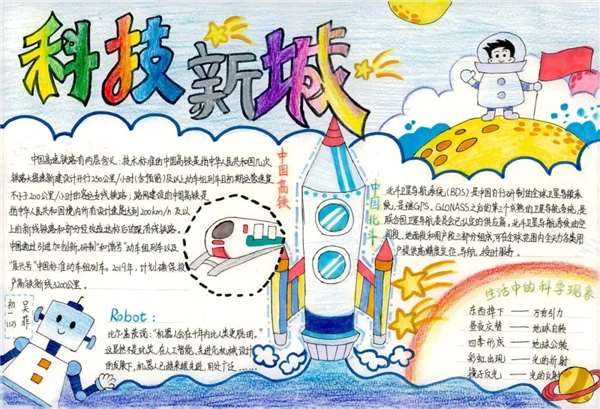 科技新城
中国高速铁路有两层含义：技术标准的中国高铁是指中华人民共和国几次
铁路大提速新建设计开行250公里/小时(含预留)及以上动车组列车且初期运营速度
不小于200公里/小时的客运专线铁路；路网建设的中国高铁是
指中华人民共和国境内所有设计速度达到200km/h及以
上的新线铁路和部分经改造达标后的既有线铁路。
中国通过引进、创新、研制"和谐号"动车组列车以及
"复兴号"中国标准动车组列车。2019年，计划确保投
产高铁新线3200公里。
中国高铁
中国北斗
北斗卫星导航系统(BDS)是中国自行研制的全球卫星导航系
统，是继GPS、GLONASS之后的第三个成熟的卫星导航系统，是
联合国卫星导航委员会已认定的供应商。北斗卫星导航系统由空
间段、地面段和用户段三部分组成，可在全球范围内全天候为各类用
户提供高精度定位、导航、授时服务。
初一(2)
吴菲
Robot：
比尔·盖茨说："机器人会在十年内比人类更聪明。"
这虽然是玩笑，在人工智能、先进的机械设计
的发展下，机器人已越来越先进，用处广泛……
生活中的科学现象
东西掉下——万有引力
昼夜交替——地球自转
四季形成——地球公转
彩虹出现——光的折射
镜子反光——光的反射